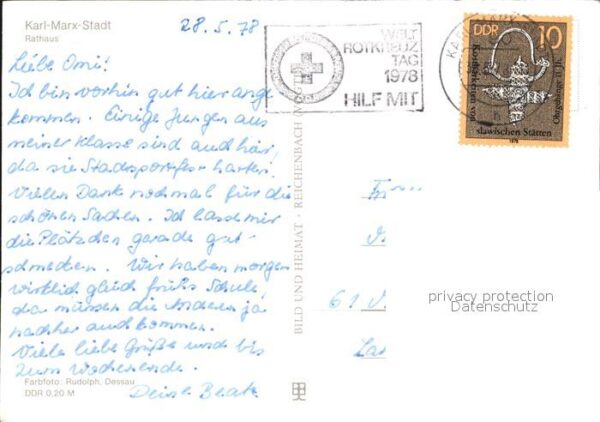 Karl-Marx-Stadt
Rathaus
28.5.78
Liebe Omi!
Ich bin vorhin gut hier ange
kommen. Einige Jungen aus
meiner Klasse sind auch hier,
da sie Stadtsportfest hatten.
Vielen Dank nochmal für die
schönen Sachen. Ich lasse mir
die Plätzchen gerade gut
schmecken. Wir haben morgen
wirklich gleich früh Schule,
da müssen die anderen ja
nachher auch kommen.
Viele liebe Grüße und bis
zum Wochenende.
Deine Beate
Farbfoto: Rudolph, Dessau
DDR 0,20 M
BILD UND HEIMAT · REICHENBACH
WELT
ROTKREUZ
TAG
1978
HILF MIT
DDR 10
Kostbarkeiten von
slawischen Stätten
Ohrgehänge
1978
61
privacy protection
Datenschutz